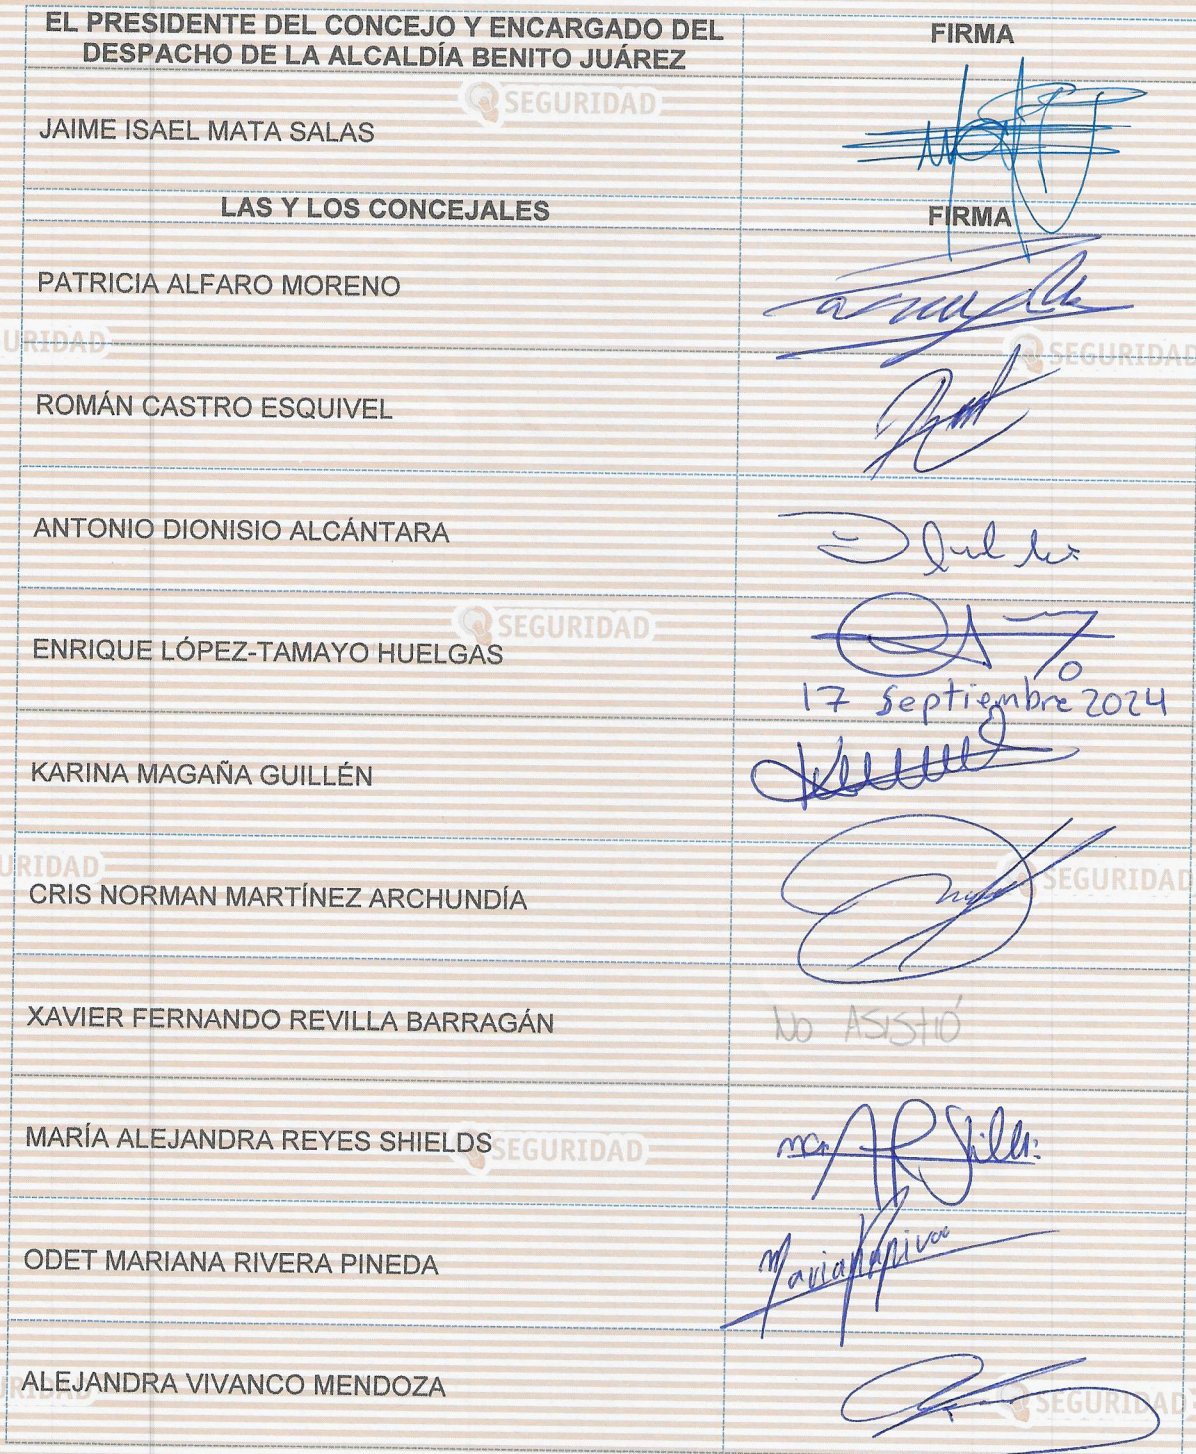 EL PRESIDENTE DEL CONCEJO Y ENCARGADO DEL
DESPACHO DE LA ALCALDÍA BENITO JUÁREZ
FIRMA
SEGURIDAD
JAIME ISAEL MATA SALAS
LAS Y LOS CONCEJALES
FIRMA
PATRICIA ALFARO MORENO
URIDAD
SEGURIDAD
ROMÁN CASTRO ESQUIVEL
ANTONIO DIONISIO ALCÁNTARA
SEGURIDAD
ENRIQUE LÓPEZ-TAMAYO HUELGAS
17 Septiembre 2024
KARINA MAGAÑA GUILLÉN
URIDAD
SEGURIDAD
CRIS NORMAN MARTÍNEZ ARCHUNDÍA
XAVIER FERNANDO REVILLA BARRAGÁN
NO ASISTIÓ
MARÍA ALEJANDRA REYES SHIELDS
SEGURIDAD
ODET MARIANA RIVERA PINEDA
ALEJANDRA VIVANCO MENDOZA
URIDAD
SEGURIDAD